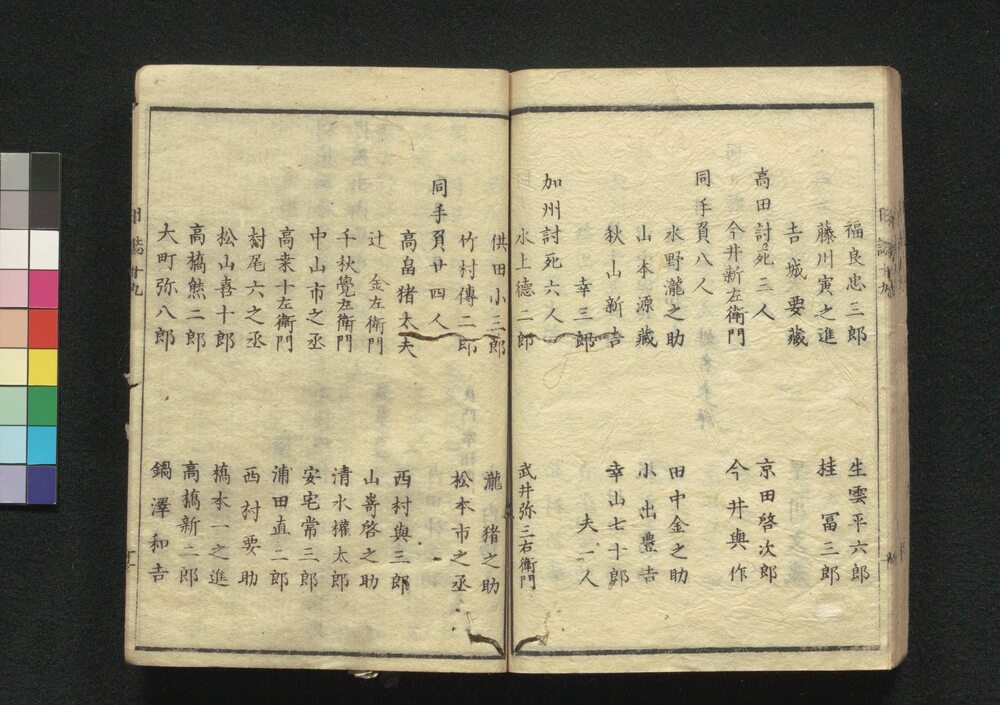 福良忠三郎　生雲平六郎
藤川寅之進　桂　冨三郎
吉城要藏
高田討死三人　京田啓次郎
今井新左衛門　今井與作
同手負八人
水野瀧之助　田中金之助
山本源藏　小出豊吉
秋山新吉　幸山七十郎
幸三郎　夫二人
加州討死六人
水上德二郎　武井弥三右衛門
供田小三郎　瀧　猪之助
竹村傳二郎　松本市之丞
同手負廿四人
高畠猪太夫　西村與三郎
辻　金左衛門　山嵜啓之助
千秋覺左衛門　清水權太郎
中山市之丞　安宅常三郎
高桒十左衛門　浦田直二郎
村尾六之丞　西村要助
松山喜十郎　橋本一之進
高橋熊二郎　高橋新二郎
大町弥八郎　鍋澤和吉
日誌廿九